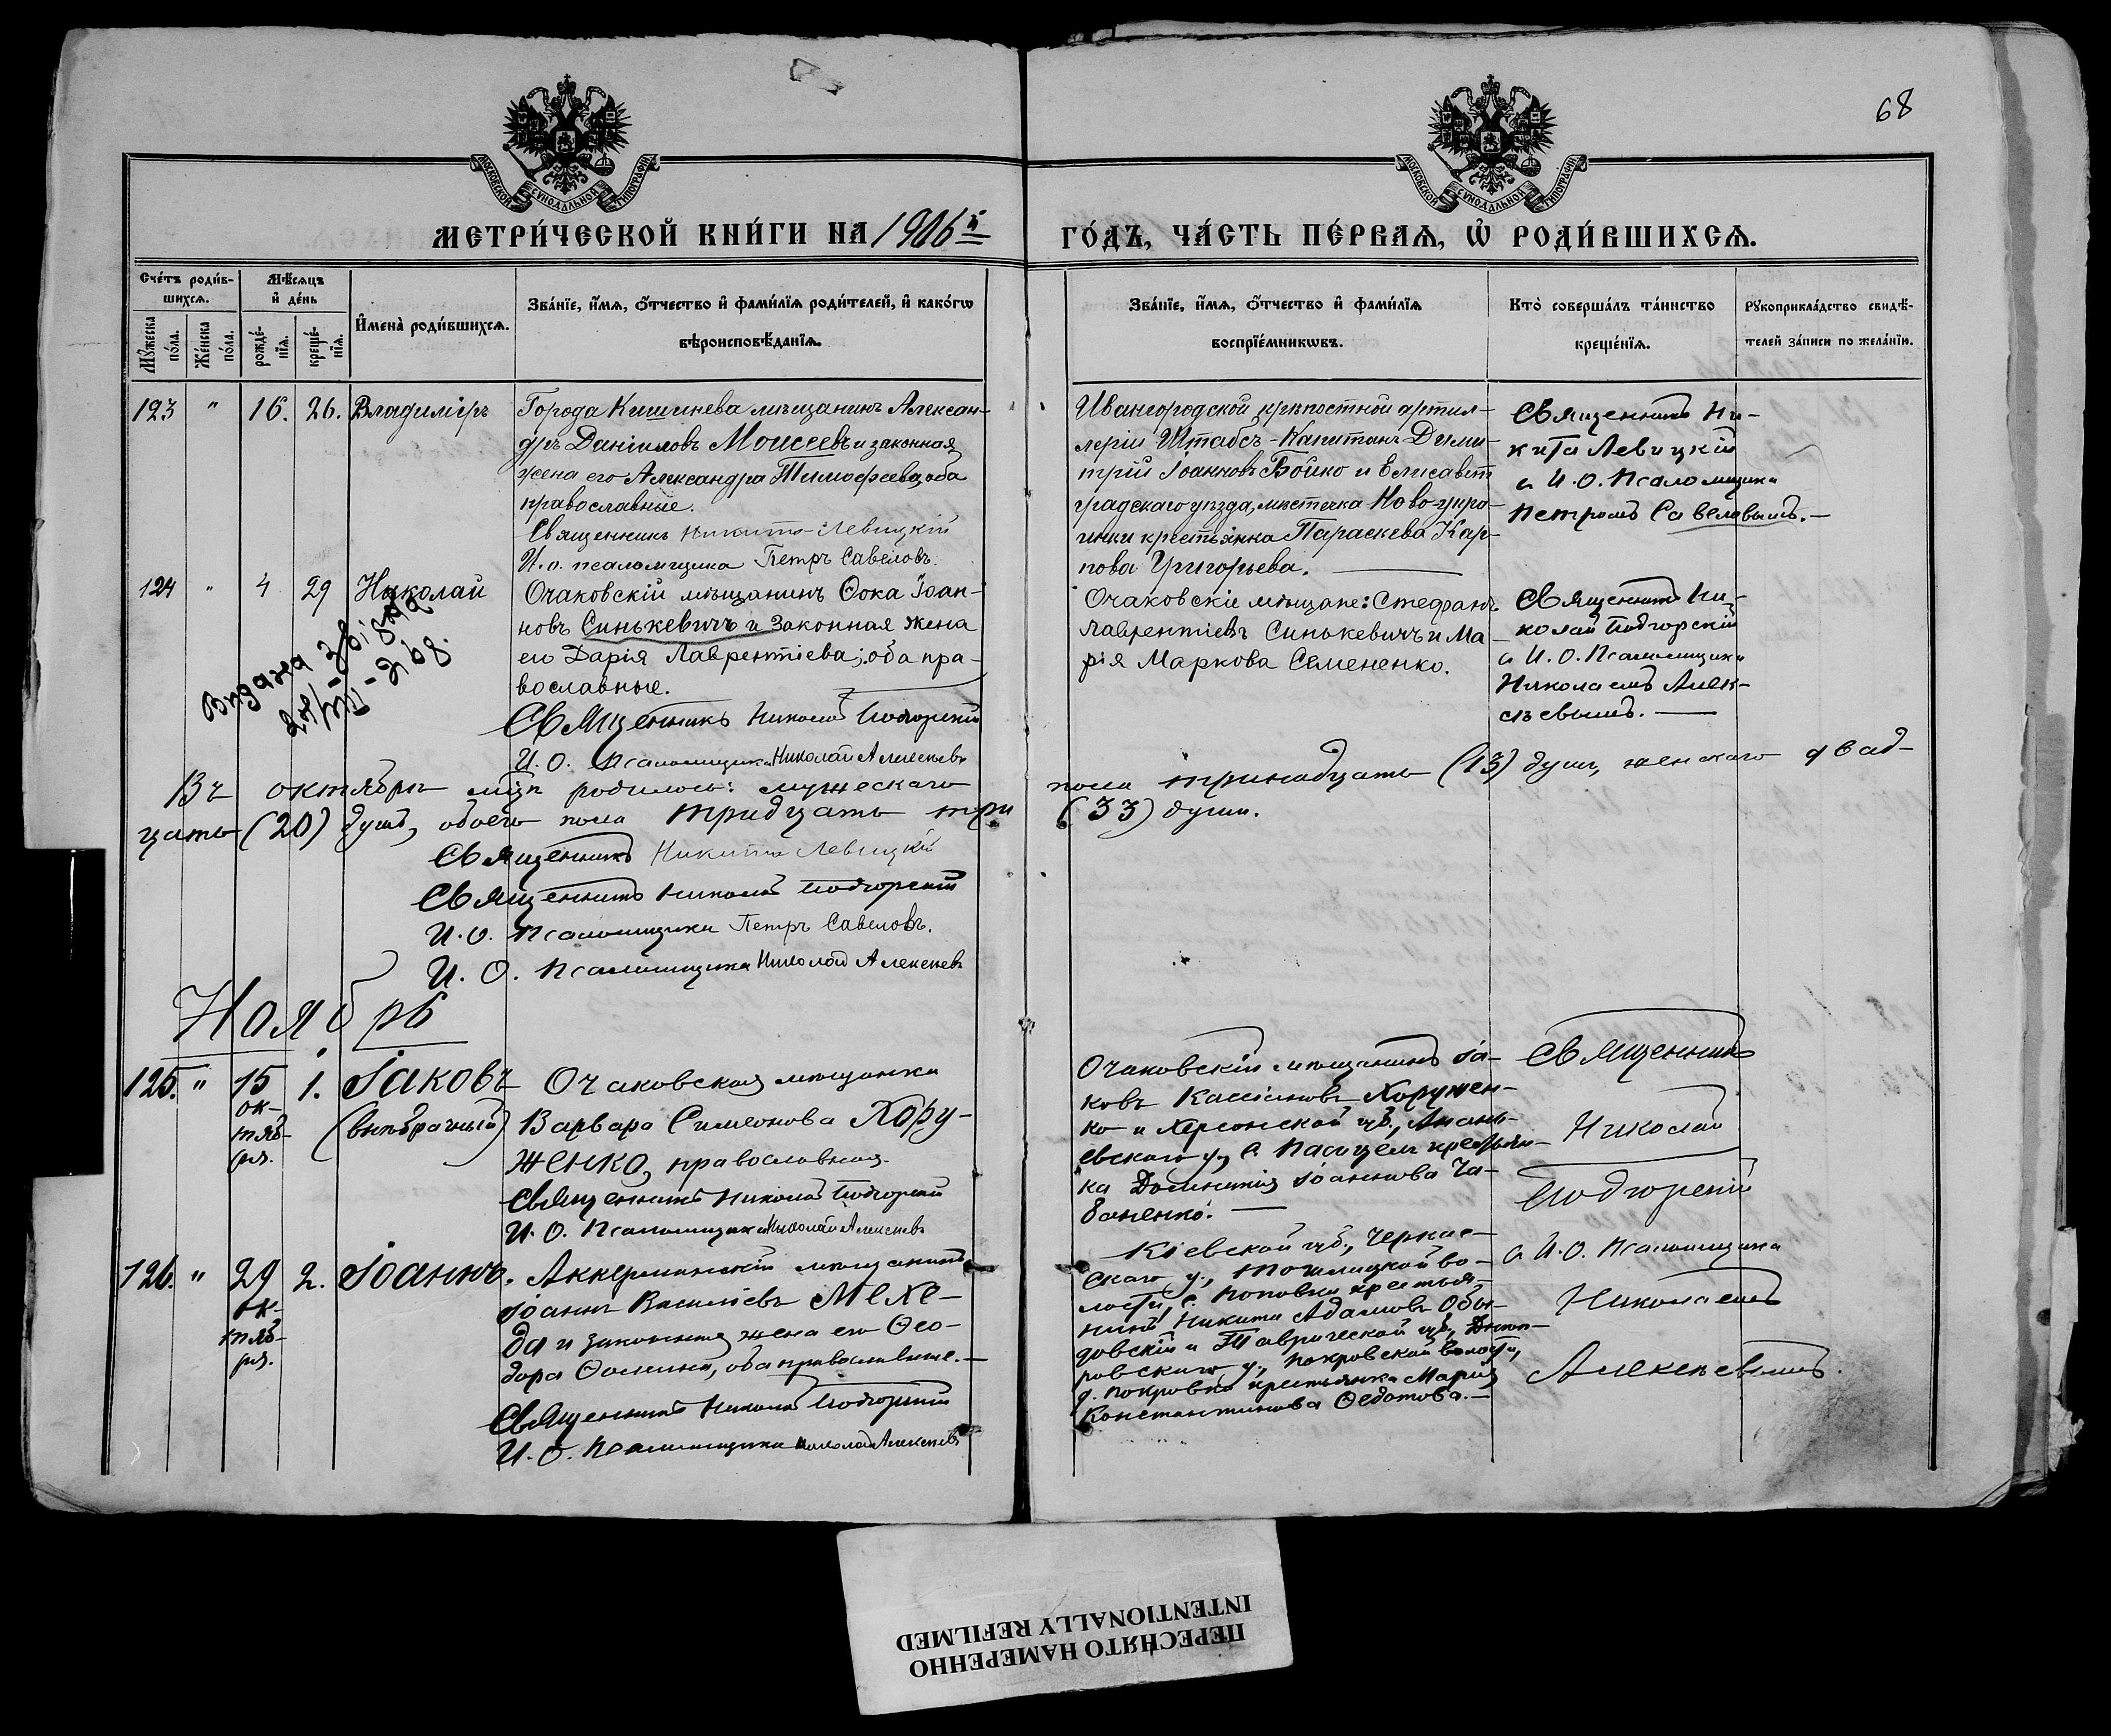 68
МОСКОВСКОЙ СѴНОДАЛЬНОЙ ТИПОГРАФІИ
МОСКОВСКОЙ СѴНОДАЛЬНОЙ ТИПОГРАФІИ
МЕТРИ́ЧЕСКОЙ КНИ́ГИ НА 1906й
ГО́ДЪ, ЧА́СТЬ ПЕ́РВАѦ, Ѡ҆ РОДИ́ВШИХСѦ.
Сче́тъ роди́вшихсѧ.
Мꙋ́жеска по́ла.
Же́нска по́ла.
Мѣ́сѧцъ и҆ де́нь
рожде́нїѧ.
креще́нїѧ.
И҆мена̀ роди́вшихсѧ.
Зва́нїе, и҆́мѧ, ѻ҆́тчество и҆ фами́лїѧ роди́телей, и҆ како́гѡ
вѣроисповѣ́данїѧ.
Зва́нїе, и҆́мѧ, ѻ҆́тчество и҆ фами́лїѧ
воспрїе́мникѡвъ.
Кто̀ соверша́лъ та́инство
креще́нїѧ.
Рꙋкоприкла́дство свидѣ́-
телей за́писи по жела́нїю.
123 " 16. 26. Владиміръ
Города Кишинева мѣщанинъ Алексан-
дръ Даніиловъ Моисеевъ и законная
жена его Александра Тимофеева, оба
православные.
Священникъ Никита Левицкій
И.о. псаломщика Петръ Савеловъ.
Ивангородской крѣпостной артил-
леріи Штабсъ-Капитанъ Дими-
трій Іоанновъ Бойко и Елисавет
градскаго уѣзда, мѣстечка Ново-укра-
инки крестьянка Параскева Кар-
пова Григорьева.
Священникъ Ни-
кита Левицкій
с И.О. Псаломщика
Петромъ Савеловымъ.
124 " 4 29 Николай
Очаковскій мѣщанинъ Ѳока Іоан-
новъ Синькевичъ и законная жена
его Дарія Лаврентіева; оба пра-
вославные.
Священникъ Николай Подгорскій
И.О. Псаломщика Николай Алексѣевъ
Видана
Очаковскіе мѣщане: Стефанъ
Лаврентіевъ Синькевичъ и Ма-
рія Маркова Семененко.
Священникъ Ни-
колай Подгорскій
с И.О. Псаломщика
Николаемъ Алек-
сѣевымъ.
Въ октябрѣ мцѣ родилось: мужескаго
пола тринадцать (13) душъ, женскаго двад-
цать (20) душъ, обоего пола тридцать три
(33) души.
Священникъ Никита Левицкій
Священникъ Николай Подгорскій
И.О. Псаломщика Петръ Савеловъ.
И.О. Псаломщика Николай Алексѣевъ
Ноябрь
125. " 15 октября. 1. Іаковъ (внѣбрачный)
Очаковская мѣщанка
Варвара Симеонова Хору-
женко, православная.
Священникъ Николай Подгорскій
И.О. Псаломщика Николай Алексѣевъ
Очаковскій мѣщанинъ Іа-
ковъ Кассіановъ Хоружен-
ко и Херсонской губ., Анань-
евскаго у., с. Пасицелъ крестьян-
ка Домникія Іоаннова Ча-
баненко.
126. " 29 октября. 2. Іоаннъ.
Аккерманскій мѣщанинъ
Іоаннъ Василіевъ Мехе-
да и законная жена его Ѳео-
дора Ѳомина, оба православные.
Священникъ Николай Подгорскій
И.О. Псаломщика Николай Алексѣевъ
Кіевской губ., Черкас-
скаго у., во-
лости, с. Поповки крестья-
нинъ Никита Адамовъ
и Таврической губ., Днѣп-
ровскаго у., Покровской волости,
д. Покровки крестьянка Марія
Константинова Ѳедотова.
Священникъ
Николай
Подгорскій
с И.О. Псаломщика
Николаемъ
Алексѣевымъ.
ПЕРЕСНЯТО НАМЕРЕННО
INTENTIONALLY REFILMED